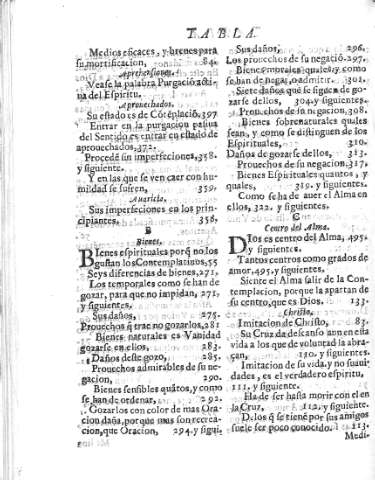 TABLA.
Medios eficaces, y breues para
su mortificacion, 84.
Aprehensiones.
Vease la palabra Purgació acti-
ua del Espiritu.
Aprouechados.
Su estado es de Cótéplació. 397
Entrar en la purgacion passiua
del Sentido es entrar en estado de
aprouechados, 372.
Procedē sin imperfecciones, 358.
y siguiente.
Y en las que se ven caer con hu-
mildad se sufren, 359.
Auaricia.
Sus imperfeciones en los prin-
cipiantes, 356.
B
Bienes.
BIenes espirituales porq̃ no los
gustan los Contemplatiuos, 55
Seys diferencias de bienes, 271,
Los temporales como se han de
gozar, para que no impidan, 271,
y siguientes.
Sus daños, 275.
Prouechos q̃ trae no gozarlos, 281
Bienes naturales es Vanidad
gozarse en ellos, 283.
Daños deste gozo, 285.
Prouechos admirables de su ne-
gacion, 290.
Bienes sensibles quátos, y como
se han de ordenar, 292.
Gozarlos con color de mas Ora-
cion daña, porque mas son recrea-
cion, que Oracion, 294. y sigui.
Sus daños, 296.
Los prouechos de su negació. 297.
Bienes morales quales, y como
se han de negar, o admitir. 302.
Siete daños que se siguen de go-
zarse dellos, 304. y siguientes.
Prouechos de su nigacion, 308.
Bienes sobrenaturales quales
sean, y como se distinguen de los
Espirituales, 310.
Daños de gozarse dellos, 313.
Prouechos de su nigacion, 317.
Bienes Espirituales quantos, y
quales, 319. y siguientes.
Como se ha de auer el Alma en
ellos, 322. y siguientes.
C
Centro del Alma.
DIos es centro del Alma, 495.
y siguientes.
Tantos centros como grados de
amor, 495, y siguientes.
Siente el Alma salir de la Con-
templacion, porque la apartan de
su centro, que es Dios. 133.
Christo.
Imitacion de Christo, 87.
Su Cruz da descanso aun en esta
vida a los que de voluntad la abra-
çan, 110. y siguientes.
Imitacion de su vida, y no suaui-
dades, es el verdadero espiritu,
111. y siguiente.
Ha de ser hasta morir con el en
la Cruz, 112. y siguiente.
De los q̃ se tiené por sus amigos
suele ser poco conocido. 113.
Medi-